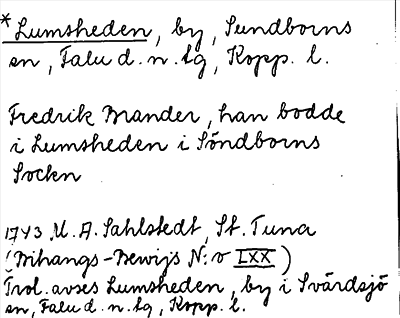 *Lumsheden, by, Sundborns
sn, Falu d.n.tg, Kopp. l.
Fredrik Brander, han bodde
i Lumsheden i Söndborns
Sockn
1743 M. A. Sahlstedt, St. Tuna
(Bihangs-Bewijs N:o LXX)
Trol. avses Lumsheden, by i Svärdsjö
sn, Falu d.n.tg, Kopp. l.